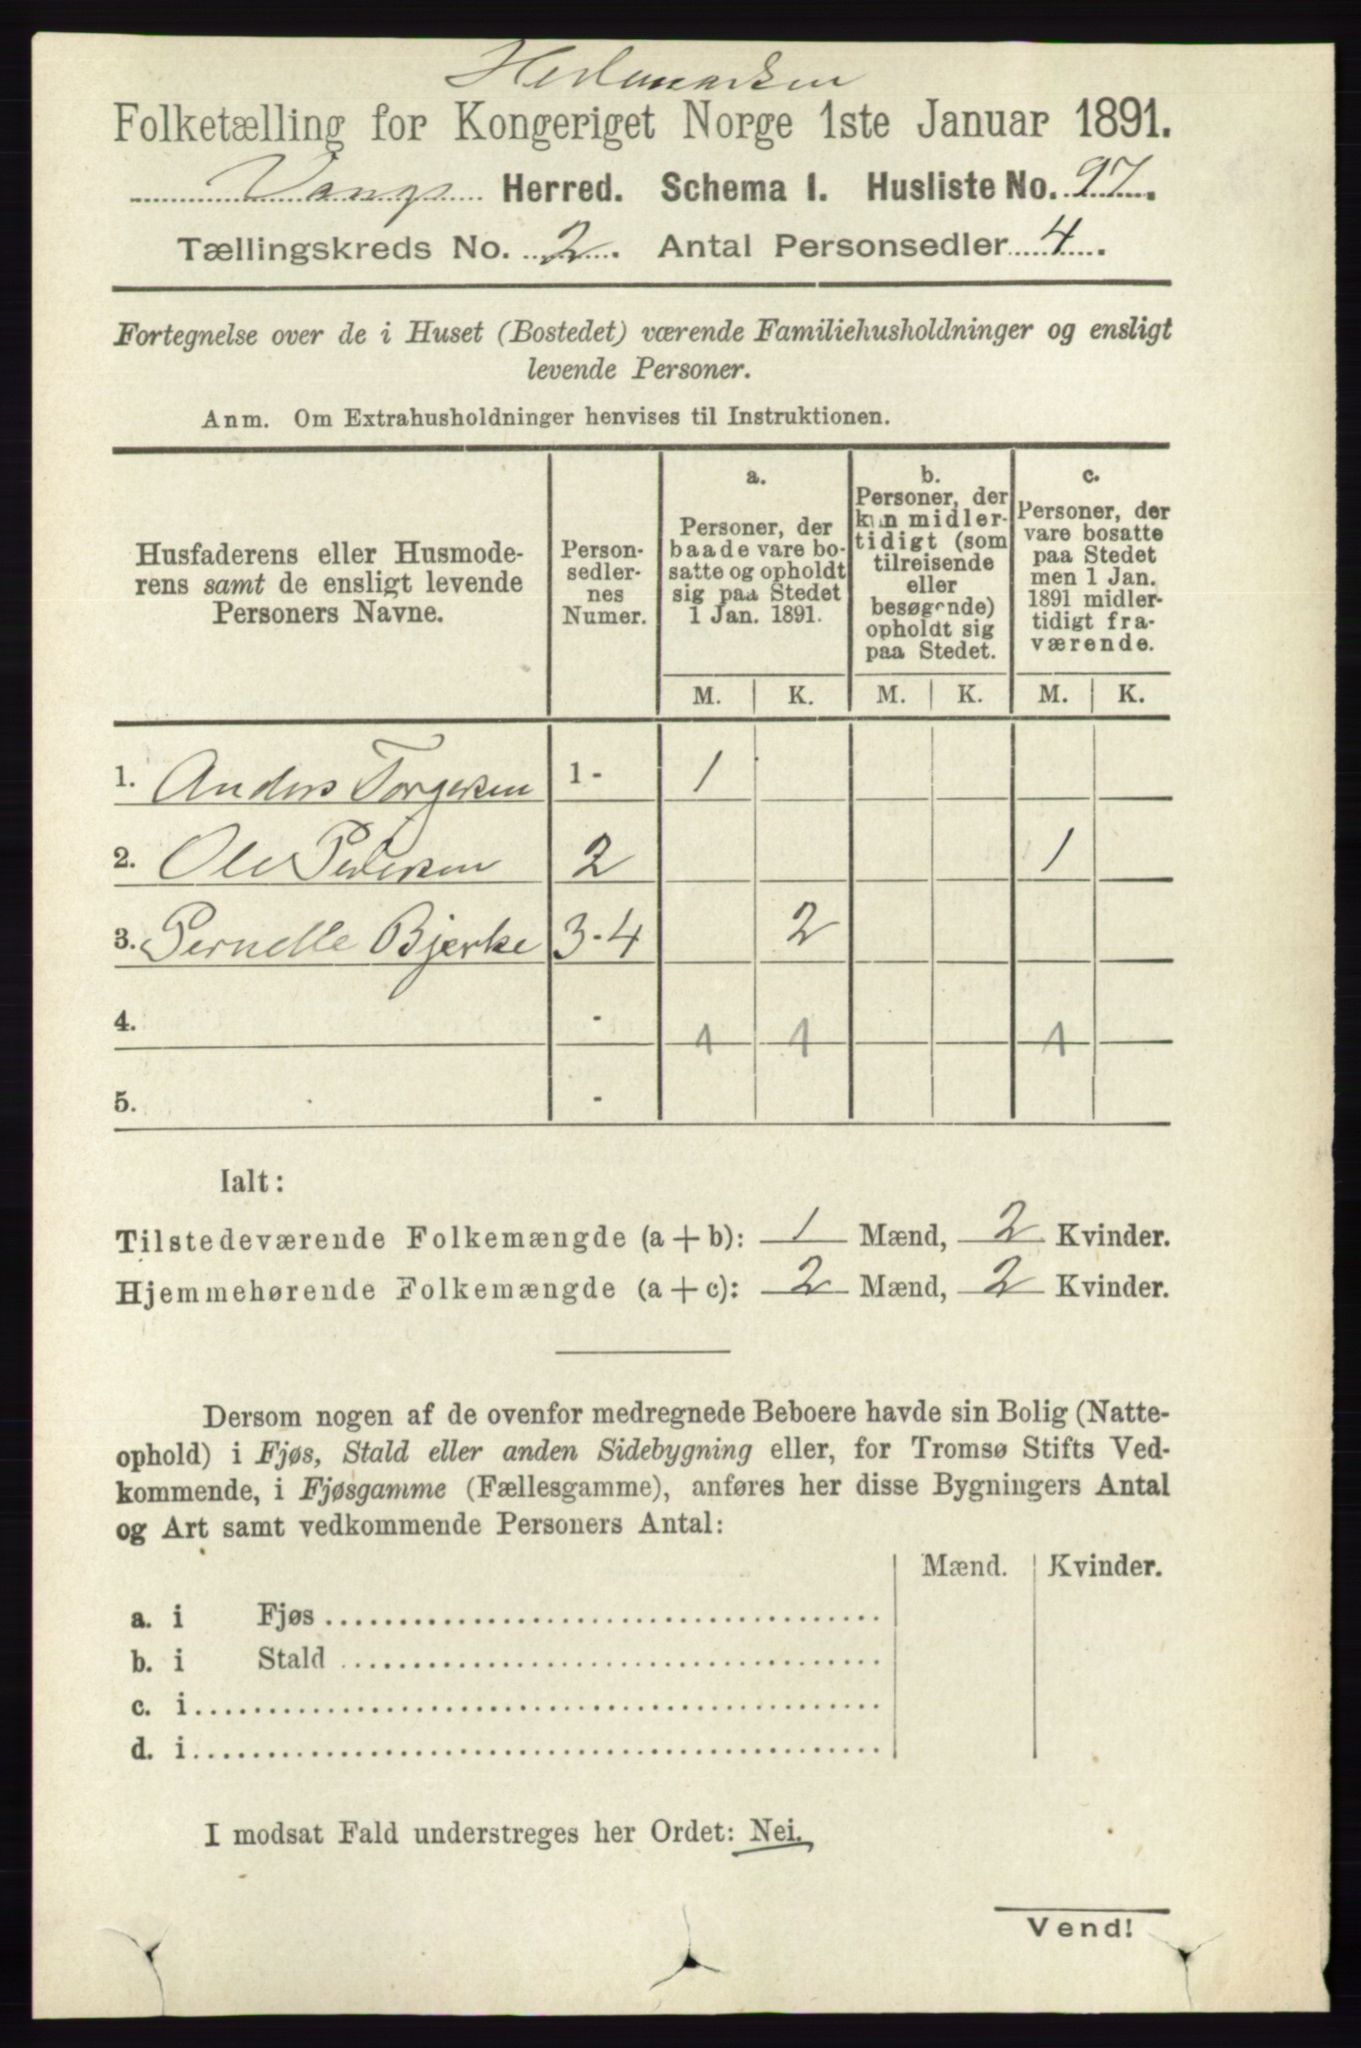 Hedemarken
Folketælling for Kongeriget Norge 1ste Januar 1891.
Vangs Herred. Schema I. Husliste No. 97.
Tællingskreds No. 2. Antal Personsedler 4.
Fortegnelse over de i Huset (Bostedet) værende Familiehusholdninger og ensligt
levende Personer.
Anm. Om Extrahusholdninger henvises til Instruktionen.
Husfaderens eller Husmode-
rens samt de ensligt levende
Personers Navne.
Person-
sedler-
nes
Numer.
a.
Personer, der
baade vare bo-
satte og opholdt
sig paa Stedet
1 Jan. 1891.
b.
Personer, der
kun midler-
tidigt (som
tilreisende
eller
besøgende)
opholdt sig
paa Stedet.
c.
Personer, der
vare bosatte
paa Stedet
men 1 Jan.
1891 midler-
tidigt fra-
værende.
M. K. M. K. M. K.
1. Anders Torgersen 1 - 1
2. Ole Pedersen 2 1
3. Pernelle Bjerke 3-4 2
4. - 1 1 1
5. -
Ialt:
Tilstedeværende Folkemængde (a + b): 1 Mænd, 2 Kvinder.
Hjemmehørende Folkemængde (a + c): 2 Mænd, 2 Kvinder.
Dersom nogen af de ovenfor medregnede Beboere havde sin Bolig (Natte-
ophold) i Fjøs, Stald eller anden Sidebygning eller, for Tromsø Stifts Ved-
kommende, i Fjøsgamme (Fællesgamme), anføres her disse Bygningers Antal
og Art samt vedkommende Personers Antal:
Mænd. Kvinder.
a. i Fjøs
b. i Stald
c. i
d. i
I modsat Fald understreges her Ordet: Nei.
Vend!